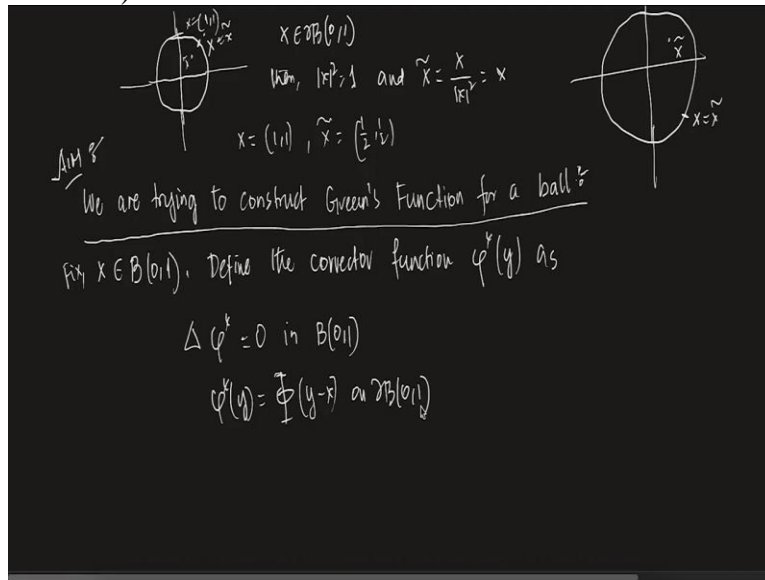 x=(1,1)
x̃=x
x̃
x ∈ ∂B(0,1)
then, |x|²=1 and x̃ = x/|x|² = x
x̃
x=x̃
x = (1,1), x̃ = (1/2, 1/2)
AIM :
We are trying to construct Green's Function for a ball :
Fix, x ∈ B(0,1). Define the corrector function φˣ(y) as
Δ φˣ = 0 in B(0,1)
φˣ(y) = Φ(y-x) on ∂B(0,1)